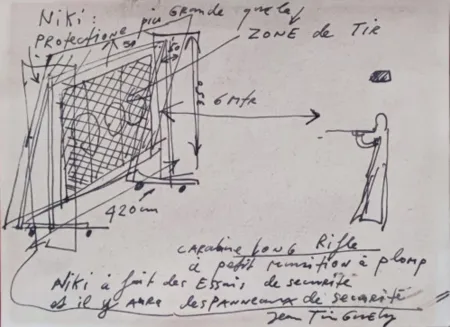 Niki:
PROTECTIONE piu GRANDE que la
ZONE de Tir
50
50
6 Mtr
420 cm
CARABINE LONG Rifle
a petit munition à plomp
Niki à fait des Essais de securité
et il y aura des PANNEAUX de securité
Jean Tinguely